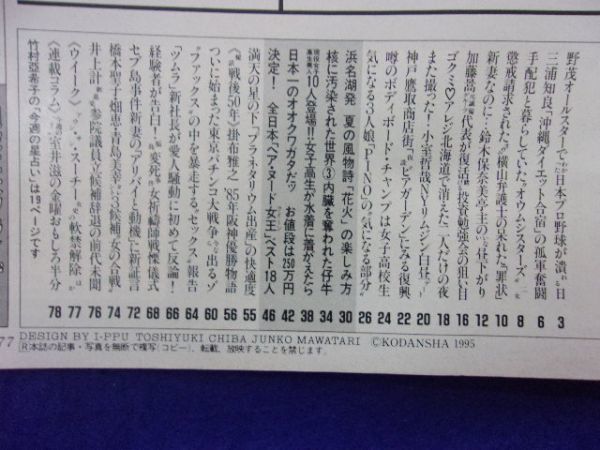 野茂オールスターで日本プロ野球が潰れた日 3
三浦知良「沖縄ダイエット合宿」の孤軍奮闘 6
手配犯と暮らしていた「オウムシスターズ」 8
懲戒請求された「横山弁護士の呆れた『罪状』 10
新妻なのに…鈴木保奈美亭主のいぬ昼下がり 12
加藤暠「元誠備代表」が復活!投資勉強会の狙い目 16
ゴクミ♡アレジ北海道で消えた二人だけの夜 18
また撮った!小室哲哉NYリムジン白昼
神戸鷹取商店街「ビアガーデン」にみる復興 22
噂のボディボード・チャンプは女子高校生 24
気になる3人娘「PINO」の“気になる部分” 26
浜名湖発 夏の風物詩「花火」の楽しみ方 30
核に汚染された世界③内臓を奪われた仔牛 34
10人登場!!女子高生が水着に着がえたら 38
日本一のオオクワガタだッ お値段は250万円 42
決定! 全日本「ヘア・ヌード女王」ベスト18人 46
満天の星の下「プラネタリウム出産」の快適度 55
戦後50年 掛布雅之「'85年阪神優勝物語」 56
ついに始まった東京パチンコ大戦争 出るゾ 60
「ファックス」の中を暴走する「セックス」報告 64
「ツムラ」新社長が愛人騒動に初めて反論! 66
経験者が告白!「変死」女祈祷師戦慄儀式 68
セブ島事件新妻の「アリバイと動機」に新証言 72
橋本聖子畑恵・青島美幸3候補「女の合戦」 74
井上計 参院議員立候補辞退の前代未聞 76
〈ウイーク〉 スー・チー 軟禁解除 77
〈連載コラム〉 室井滋の金曜おもしろ半分 78
竹村亜希子の「今週の星占い」は19ページです
77 DESIGN BY I-PPU TOSHIYUKI CHIBA JUNKO MAWATARI ©KODANSHA 1995
Ⓡ本誌の記事・写真を無断で複写(コピー)、転載、放映することを禁じます。